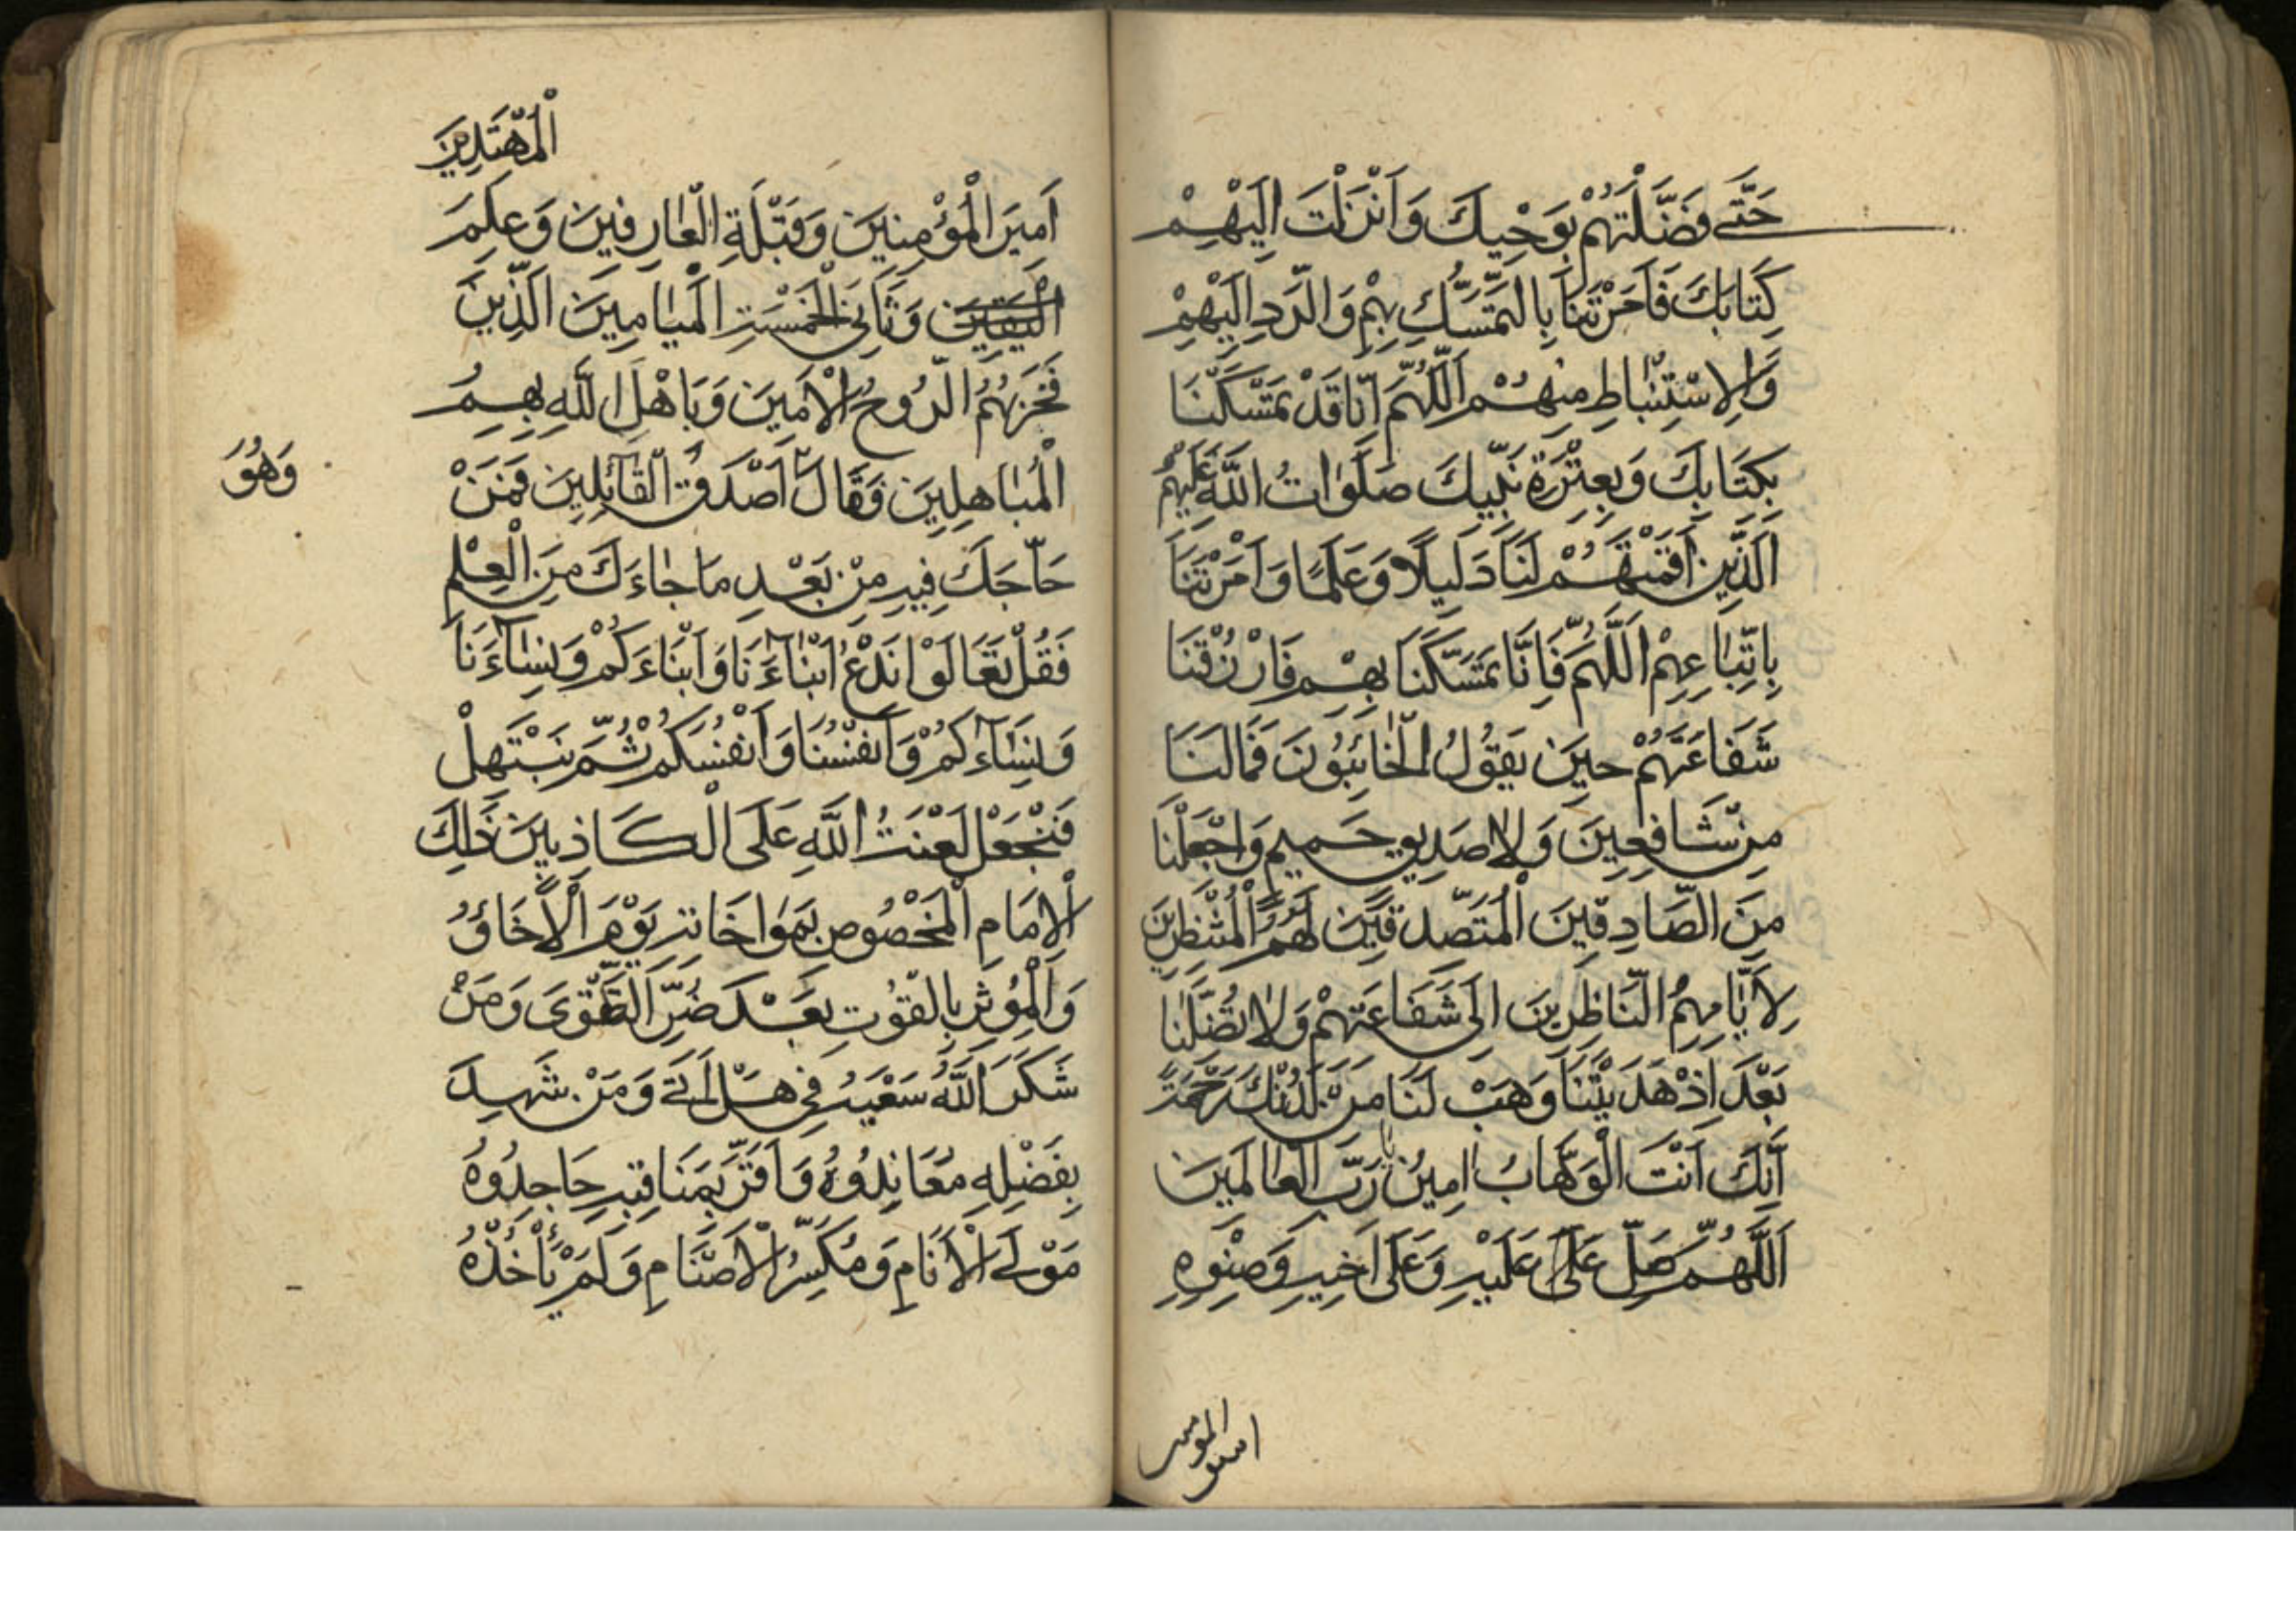 حَتّٰى فَضَّلْتَهُمْ بِوَحْيِكَ وَاَنْزَلْتَ اِلَيْهِمْ
كِتَابَكَ فَاَمَرْتَنَا بِالتَّمَسُّكِ بِهِمْ وَالرَّدِ اِلَيْهِمْ
وَالِاسْتِنْبَاطِ مِنْهُمْ اَللّٰهُمَّ اِنَّا قَدْ تَمَسَّكْنَا
بِكِتَابِكَ وَبِعِتْرَةِ نَبِيِّكَ صَلَوَاتُ اللّٰهِ عَلَيْهِمْ
اَلَّذِينَ اَقَمْتَهُمْ لَنَا دَلِيلًا وَعَلَمًا وَاَمَرْتَنَا
بِاتِّبَاعِهِمْ اَللّٰهُمَّ فَاِنَّا تَمَسَّكْنَا بِهِمْ فَارْزُقْنَا
شَفَاعَتَهُمْ حِينَ يَقُولُ الْخَائِبُونَ فَمَا لَنَا
مِنْ شَافِعِينَ وَلَا صَدِيقٍ حَمِيمٍ وَاجْعَلْنَا
مِنَ الصَّادِقِينَ الْمُتَصَدِّقِينَ لَهُمُ الْمُنْتَظِرِينَ
لِاَيَّامِهِمُ النَّاظِرِينَ اِلٰى شَفَاعَتِهِمْ وَلَا تُضِلَّنَا
بَعْدَ اِذْ هَدَيْتَنَا وَهَبْ لَنَا مِنْ لَدُنْكَ رَحْمَةً
اِنَّكَ اَنْتَ الْوَهَّابُ اٰمِينَ يَا رَبَّ الْعَالَمِينَ
اَللّٰهُمَّ صَلِّ عَلٰى عَلَيْهِ وَعَلٰى اَخِيهِ وَصِنْوِهِ
الْمُهْتَدِينَ
اَمِيرَ الْمُؤْمِنِينَ وَقِبْلَةِ الْعَارِفِينَ وَعَلَمَ
الْيَقِينَ وَثَانِي الْخَمْسَةِ الْمَيَامِينَ الَّذِينَ
فَخَرَبِهُمُ الرُّوحُ الْاَمِينَ وَبَاهَلَ اللّٰهِ بِهِمُ
الْمُبَاهِلِينَ فَقَالَ اَصْدَقُ الْقَائِلِينَ فَمَنْ
وَهُوَ
حَاجَّكَ فِيهِ مِنْ بَعْدِ مَا جَاءَكَ مِنَ الْعِلْمِ
فَقُلْ تَعَالَوْا نَدْعُ اَبْنَاءَنَا وَاَبْنَاءَكُمْ وَنِسَاءَنَا
وَنِسَاءَكُمْ وَاَنْفُسَنَا وَاَنْفُسَكُمْ ثُمَّ نَبْتَهِلْ
فَنَجْعَلْ لَعْنَتَ اللّٰهِ عَلَى الْكَاذِبِينَ ذٰلِكَ
الْاِمَامِ الْمَخْصُوصِ بِمَوَاخَاتِهِ يَوْمَ الْاِخَاؤُ
وَالْمُؤْثِرِ بِالْقُوتِ بَعْدَ ضُرِّ الطَّوٰى وَمَنْ
شَكَرَ اللّٰهُ سَعْيَهُ فِي هَلْ اَتٰى وَمَنْ شَهِدَ
بِفَضْلِهِ مُعَانِدُوهُ وَاَقَرَّ بِمَنَاقِبِهِ جَاحِدُوهُ
مَوْلَى الْاَنَامِ وَمُكَسِّرُ الْاَصْنَامِ وَلَمْ يَأْخُذْهُ